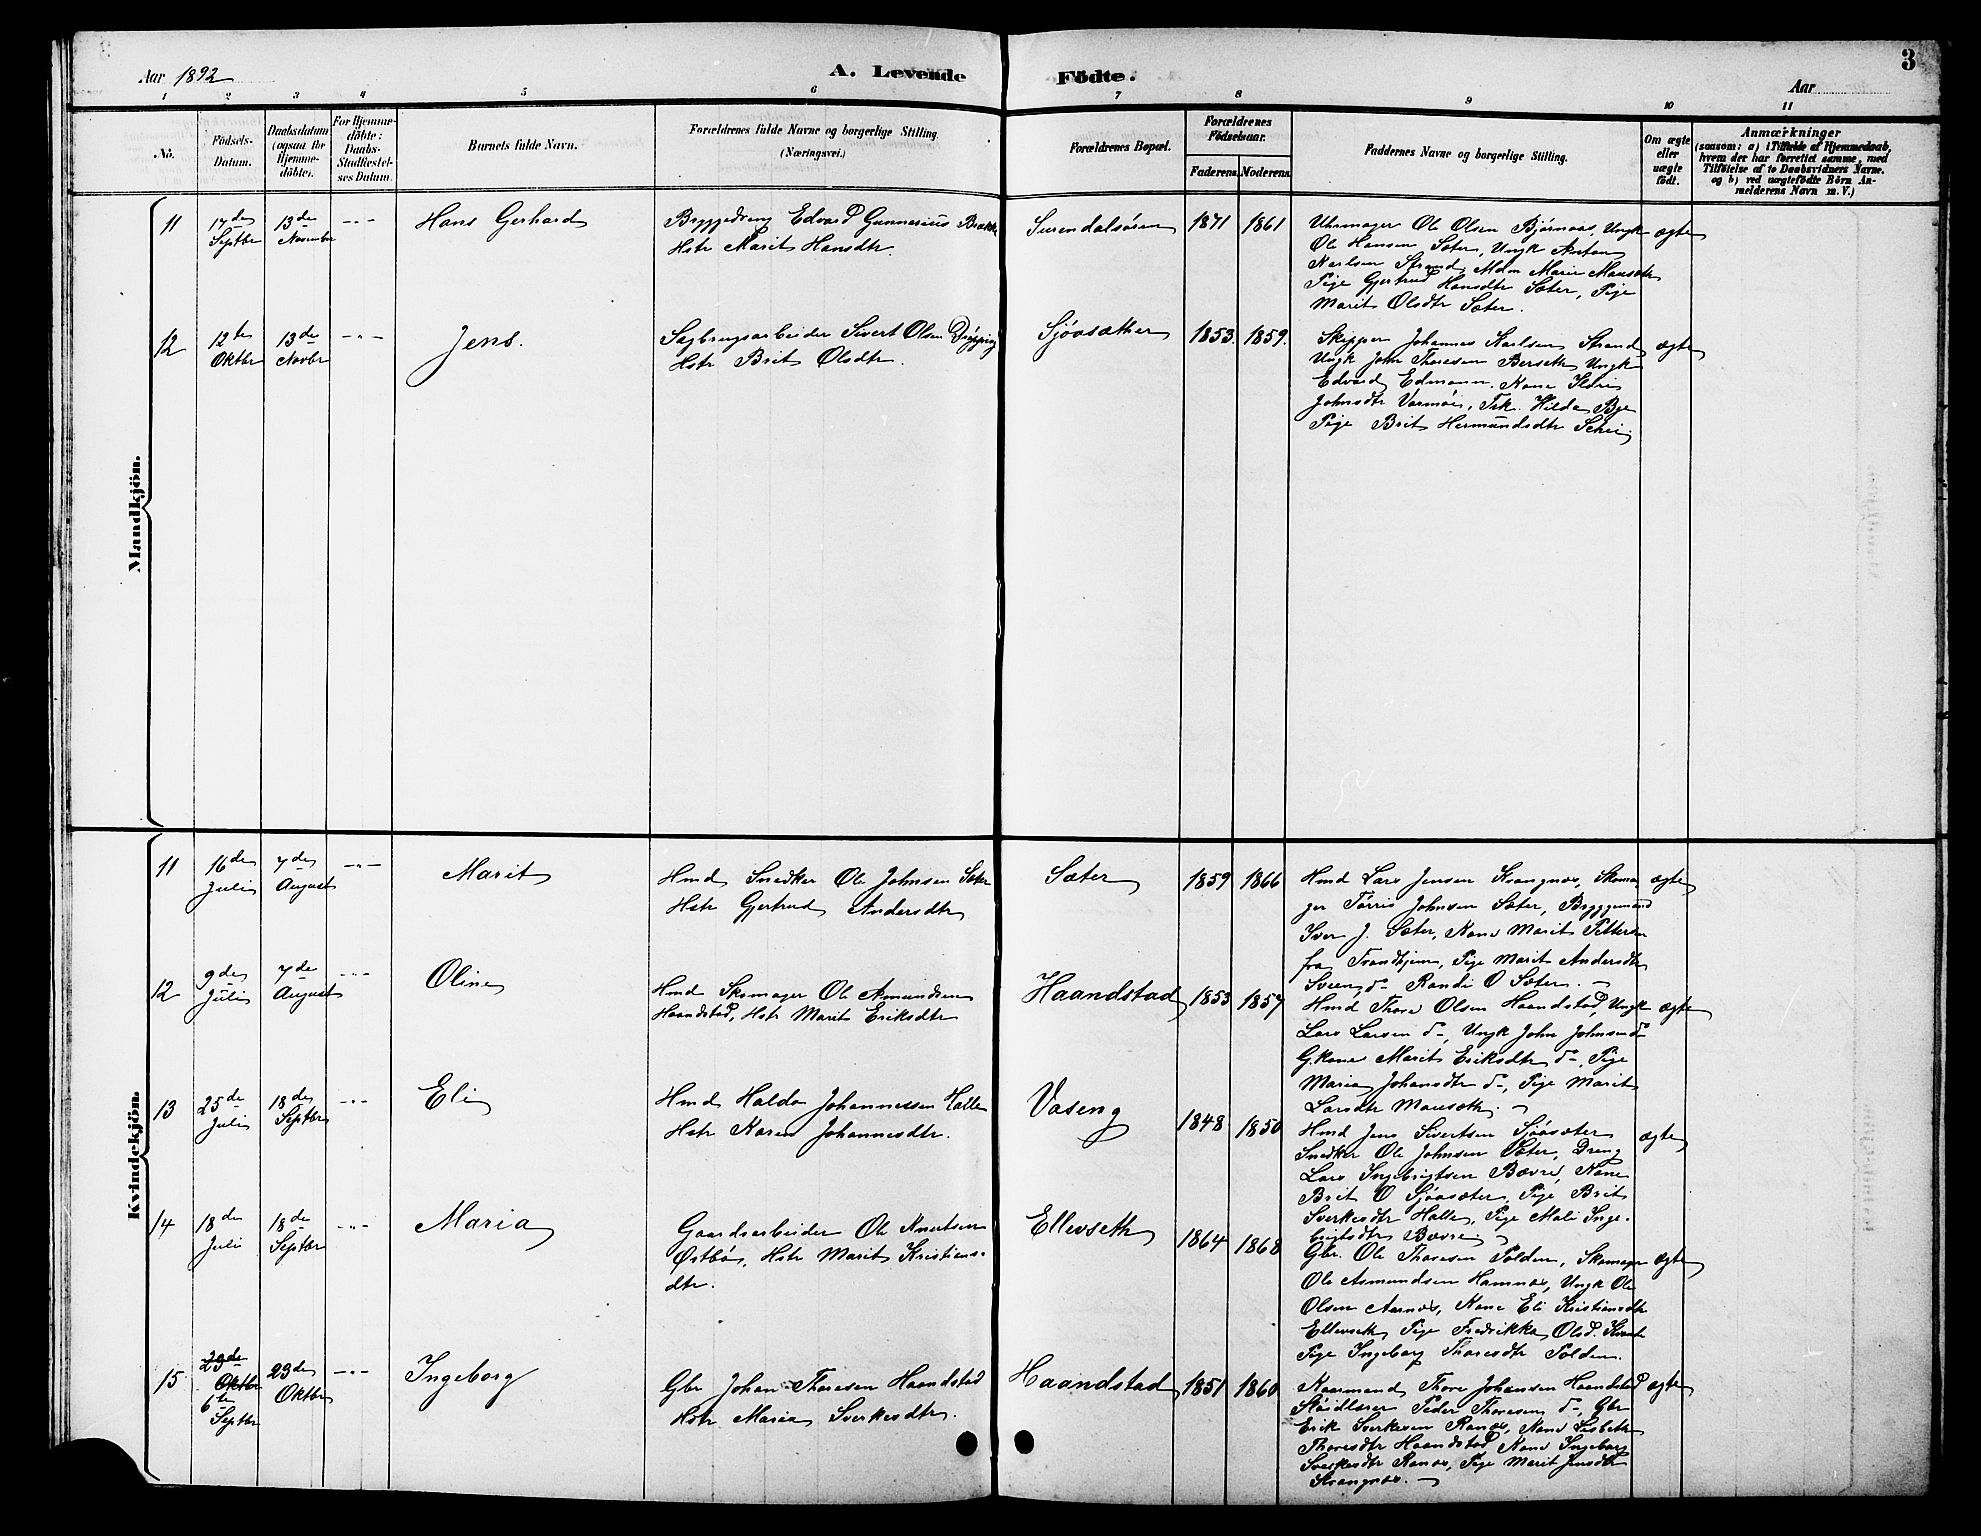 Aar 1892
A. Levende
Födte.
Aar
3
1 2 3 4 5 6 7 8 9 10 11
No.
Födsels-
Datum.
Daabsdatum
(ogsaa for
Hjemme-
döbte).
For Hjemme-
döbte:
Daabs-
Stadfæstel-
ses Datum.
Barnets fulde Navn.
Forældrenes fulde Navne og borgerlige Stilling.
(Næringsvei.)
Forældrenes Bopæl.
Forældrenes
Födselsaar.
Faderens. Moderens.
Faddernes Navne og borgerlige Stilling.
Om ægte
eller
uægte
födt.
Anmærkninger
(saasom: a) i Tilfælde af Hjemmedaab,
hvem der har forrettet samme, med
Tilföielse af to Daabsvidners Navne.
og b) ved uægtefödte Börn An-
melderens Navn m. V.)
Mandkjön.
11
17de
Septbr
13de
November
-"-
Hans Gerhard
Byggedreng Edvard Gunnerius Brække
Hstr Marit Hansdtr.
Surendalsøren
1871 1861
Uhrmager Ole Olsen Bjørnaas, Ungk
Ole Hansen Sæter, Ungk Anton
Karlsen Strand, Mdm Marie Mausæth
Pige Gjertrud Hansdtr Sæter, Pige
Marit Olsdtr Sæter.
ægte
12
12te
Oktbr
13de
Novbr
-"-
Jens.
Sagbrugsarbeider Sivert Olsen Drøpping
Hstr Brit Olsdtr.
Sjøasæther
1853. 1859.
Skipper Johannes Karlsen Strand
Ungk John Thoresen Berseth Ungk
Edvard Edmann. Kone Ildri
Johnsdtr Varmøi, Frk. Hilda Bye
Pige Brit Hermundsdtr Schei
ægte
Kvindekjön.
11
16de
Juli
7de
August
-"-
Marit
Hmd Snedker Ole Johnsen Sæter
Hstr Gjertrud Andersdtr
Sæter
1859 1866
Hmd Lars Jensen Kvangnæs, Skoma
ger Tørris Johnsen Sæter, Byggemand
Iver J. Sæter, Kone Marit Pettersen
fra Trondhjem, Pige Marit Andersdtr
Sveeng do Randi O Sæter. -
ægte
12
9de
Juli
7de
August
-"-
Oline
Hmd Skomager Ole Asmundsen
Haandstad, Hstr Marit Eriksdtr
Haandstad
1853 1857
Hmd Thore Olsen Haandstad, Ungk
Lars Larsen do, Ungk John Johnsen do
G.kone Marit Eriksdtr do, Pige
Maria Johansdtr do, Pige Marit
Larsdtr Mauseth. -
ægte
13
25de
Juli
18de
Septbr
-"-
Eli
Hmd Haldo Johannessen Halle
Hstr Karen Johannesdtr.
Vaseng
1848 1850
Hmd Jens Sivertsen Sjøasæter
Snedker Ole Johnsen Sæter, Dreng
Lars Ingebrigtsen Bævre, Kone
Brit O Sjøasæter, Pige Brit
Sverkesdtr Halle, Pige Mali Inge-
brigtsdtr Bævre -
ægte
14
18de
Juli
18de
Septbr
-"-
Maria
Gaardsarbeider Ole Knutsen
Østbø, Hstr Marit Kristians-
dtr.
Ellevseth
1864 1868
Gbr. Ole Thoresen Polden, Skomager
Ole Asmundsen Hamnes, Ungk Ole
Olsen Aarnes, Kone Eli Kristiansdtr
Ellevseth Pige Fredrikke Olsd.
Pige Ingeborg Thoresdtr Polden.
ægte
15
23de
Oktbr
6te
Septbr
23de
Oktbr
-"-
Ingeborg
Gbr Johan Thoresen Haandstad
Hstr Maria Sverkesdtr.
Haandstad
1851 1860
Kaarmand Thore Johansen Haandstad
Sløidlærer Peder Thoresen do, Gbr
Erik Sverkesen Ranes, Kone Lisbeth
Thoresdtr Haandstad Kone Ingeborg
Sverkesdtr Ranes, Pige Marit Jensdtr
Kvangnæs. -
ægte